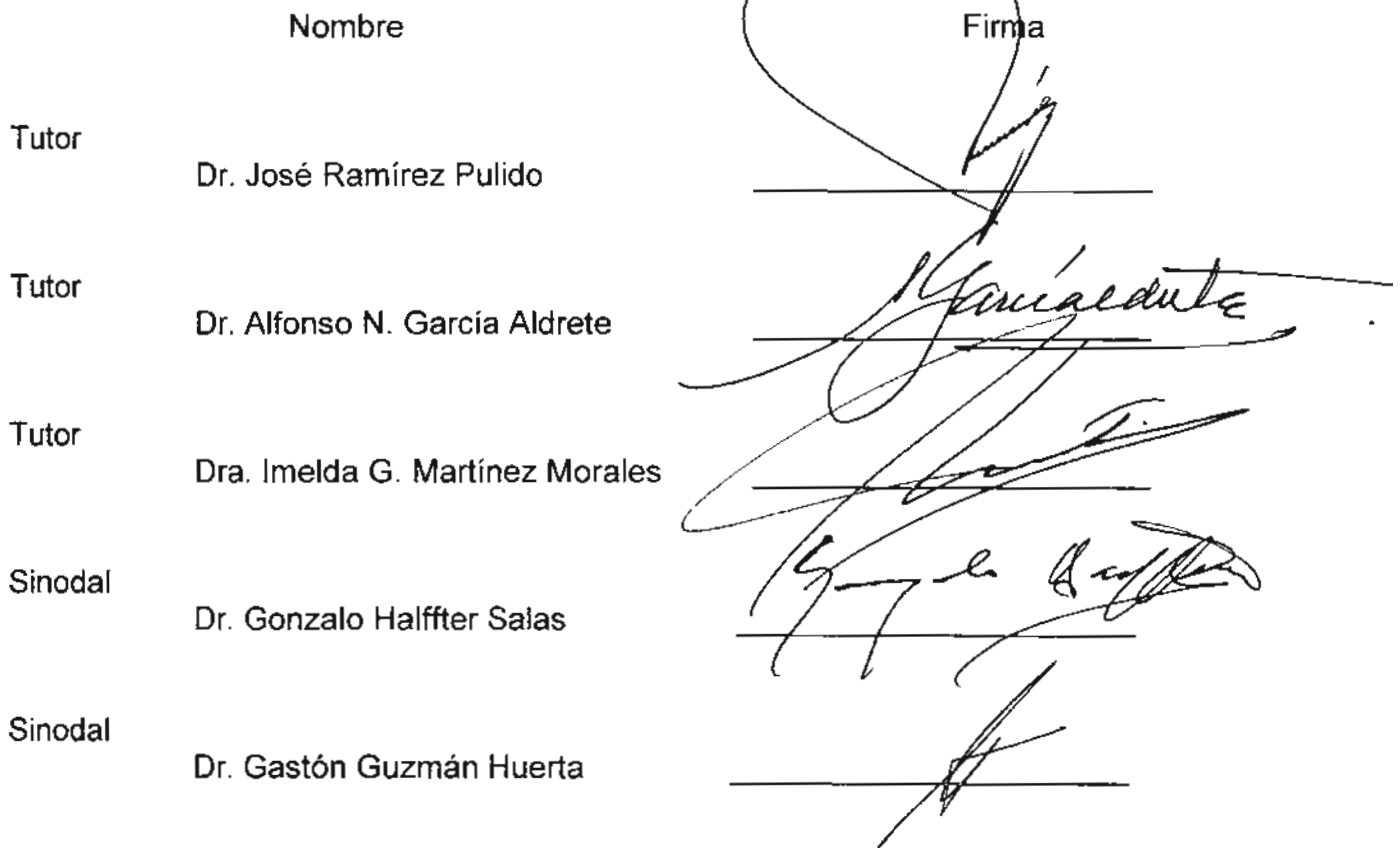 Nombre Firma
Tutor
Dr. José Ramírez Pulido
Tutor
Dr. Alfonso N. García Aldrete
Tutor
Dra. Imelda G. Martínez Morales
Sinodal
Dr. Gonzalo Halffter Salas
Sinodal
Dr. Gastón Guzmán Huerta